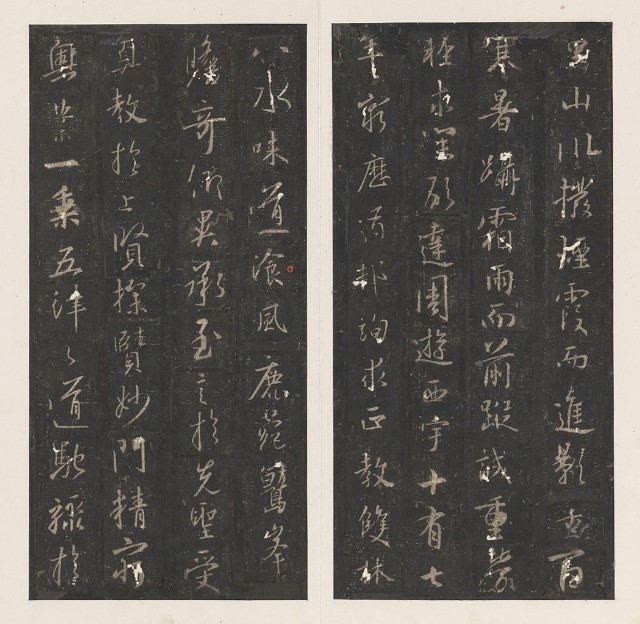 里山川撥煙霞而進影百
寒暑躡霜雨而前蹤誠重勞
輕求深願達周遊西宇十有七
年窮歷道邦詢求正教雙林
八水味道飡風鹿菀鷲峯
瞻奇仰異承至言於先聖受
真教於上賢探賾妙門精窮
奧業一乘五律之道馳驟於